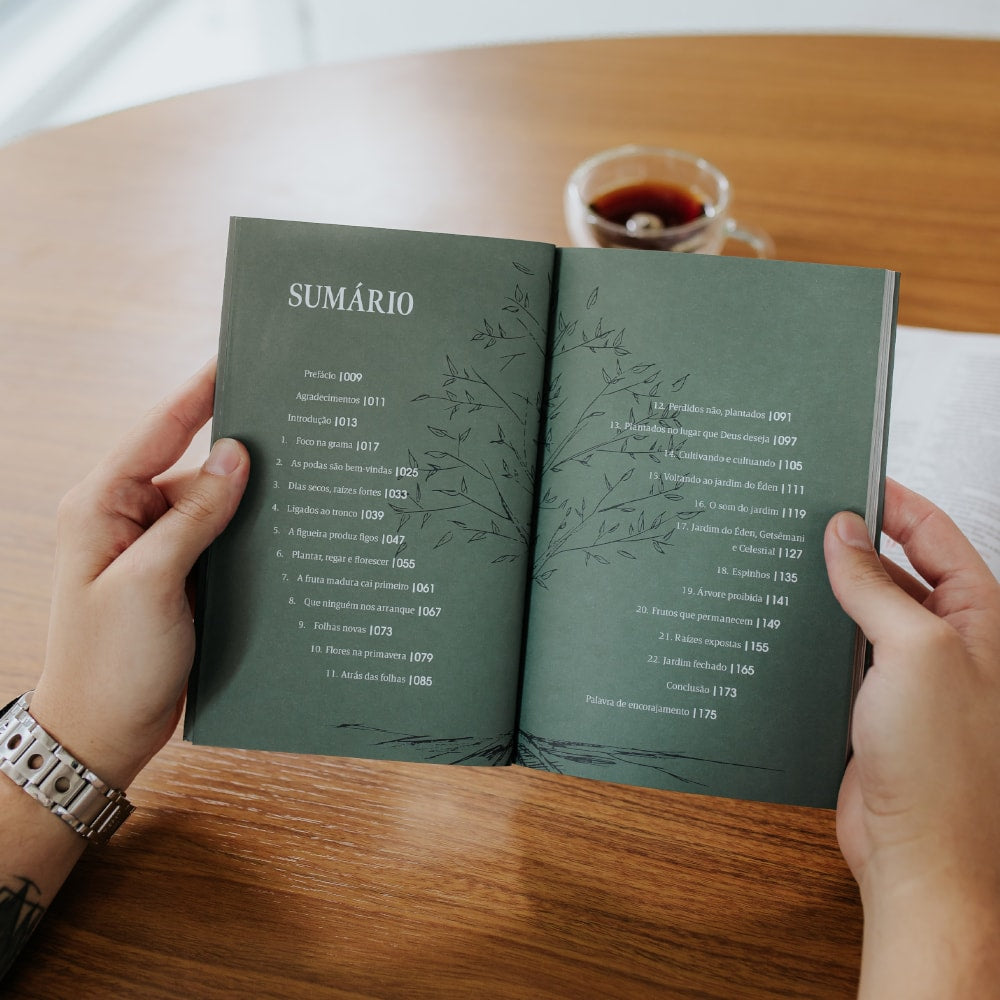 SUMÁRIO
Prefácio |009
Agradecimentos |011
Introdução |013
1. Foco na grama |017
2. As podas são bem-vindas |025
3. Dias secos, raízes fortes |033
4. Ligados ao tronco |039
5. A figueira produz figos |047
6. Plantar, regar e florescer |055
7. A fruta madura cai primeiro |061
8. Que ninguém nos arranque |067
9. Folhas novas |073
10. Flores na primavera |079
11. Atrás das folhas |085
12. Perdidos não, plantados |091
13. Plantados no lugar que Deus deseja |097
14. Cultivando e cultuando |105
15. Voltando ao jardim do Éden |111
16. O som do jardim |119
17. Jardim do Éden, Getsêmani
e Celestial |127
18. Espinhos |135
19. Árvore proibida |141
20. Frutos que permanecem |149
21. Raízes expostas |155
22. Jardim fechado |165
Conclusão |173
Palavra de encorajamento |175